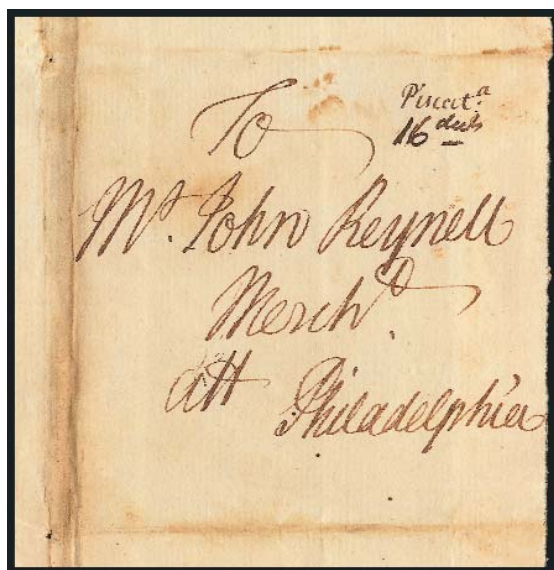 Piscat.ᵃ
16 dwt
To
Mr. John Reynell
Mercht.
att Philadelphia